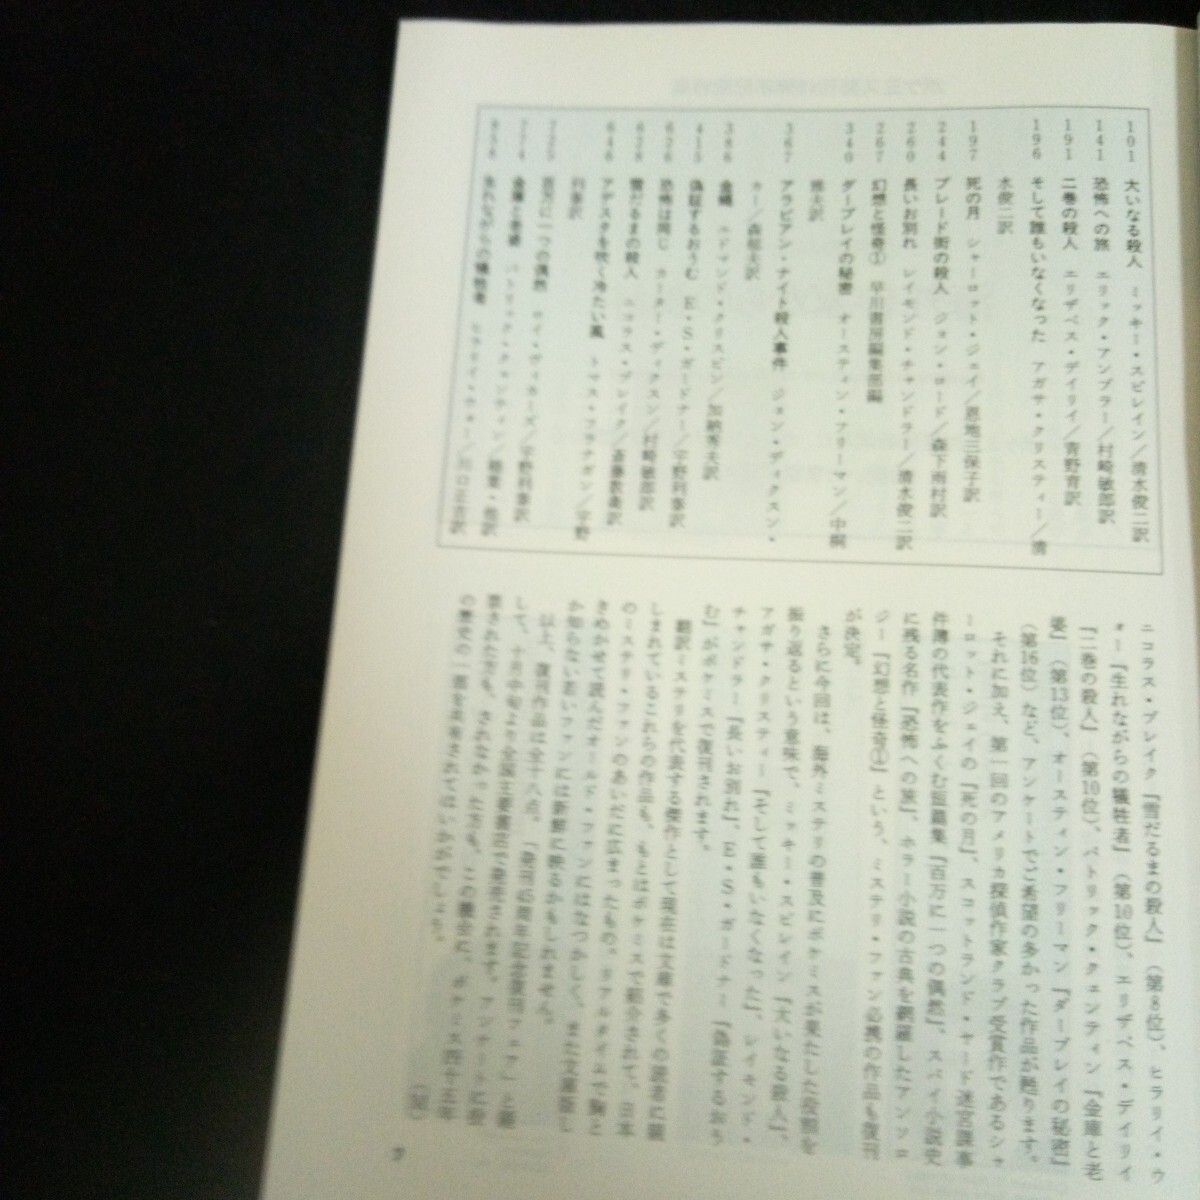 101 大いなる殺人 ミッキー・スピレイン／清水俊二訳
141 恐怖への旅 エリック・アンブラー／村崎敏郎訳
191 二巻の殺人 エリザベス・デイリイ／青野育訳
196 そして誰もいなくなった アガサ・クリスティー／清
水俊二訳
197 死の月 シャーロット・ジェイ／恩地三保子訳
244 プレード街の殺人 ジョン・ロード／森下雨村訳
260 長いお別れ レイモンド・チャンドラー／清水俊二訳
267 幻想と怪奇① 早川書房編集部編
340 ダーブレイの秘密 オースティン・フリーマン／中桐
雅夫訳
367 アラビアン・ナイト殺人事件 ジョン・ディクスン・
カー／森郁夫訳
386 金蠅 エドマンド・クリスピン／加納秀夫訳
415 偽証するおうむ E・S・ガードナー／宇野利泰訳
626 恐怖は同じ カーター・ディクスン／村崎敏郎訳
628 雪だるまの殺人 ニコラス・ブレイク／斎藤数衛訳
646 アデスタを吹く冷たい風 トマス・フラナガン／宇野
利泰訳
百万に一つの偶然 ロイ・ヴィカーズ／宇野利泰訳
774 金庫と老婆 パトリック・クェンティン／
生れながらの犠牲者 ヒラリイ・ウォー／
ニコラス・ブレイク『雪だるまの殺人』（第8位）、ヒラリイ・ウ
ォー『生れながらの犠牲者』（第10位）、エリザベス・デイリイ
『二巻の殺人』（第10位）、パトリック・クェンティン『金庫と老
婆』（第13位）、オースティン・フリーマン『ダーブレイの秘密』
（第16位）など、アンケートでご希望の多かった作品が甦ります。
それに加え、第一回のアメリカ探偵作家クラブ受賞作であるシャ
ーロット・ジェイの『死の月』、スコットランド・ヤード迷宮課事
件簿の代表作をふくむ短篇集『百万に一つの偶然』、スパイ小説史
に残る名作『恐怖への旅』、ホラー小説の古典を網羅したアンソロ
ジー『幻想と怪奇①』という、ミステリ・ファン必携の作品も復刊
が決定。
さらに今回は、海外ミステリの普及にポケミスが果たした役割を
振り返るという意味で、ミッキー・スピレイン『大いなる殺人』、
アガサ・クリスティー『そして誰もいなくなった』、レイモンド・
チャンドラー『長いお別れ』、E・S・ガードナー『偽証するおう
む』がポケミスで復刊されます。
翻訳ミステリを代表する傑作として現在は文庫で多くの読者に親
しまれているこれらの作品も、もとはポケミスで紹介されて、日本
のミステリ・ファンのあいだに広まったもの。リアルタイムで胸と
きめかせて読んだオールド・ファンにはなつかしく、また文庫版し
か知らない若いファンには新鮮に映るかもしれません。
以上、復刊作品は全十八点。「発刊45周年記念復刊フェア」と題
して、十月中旬より全国主要書店で発売されます。アンケートに投
票された方も、されなかった方も、この機会に、ポケミス四十五年
の歴史の一部を